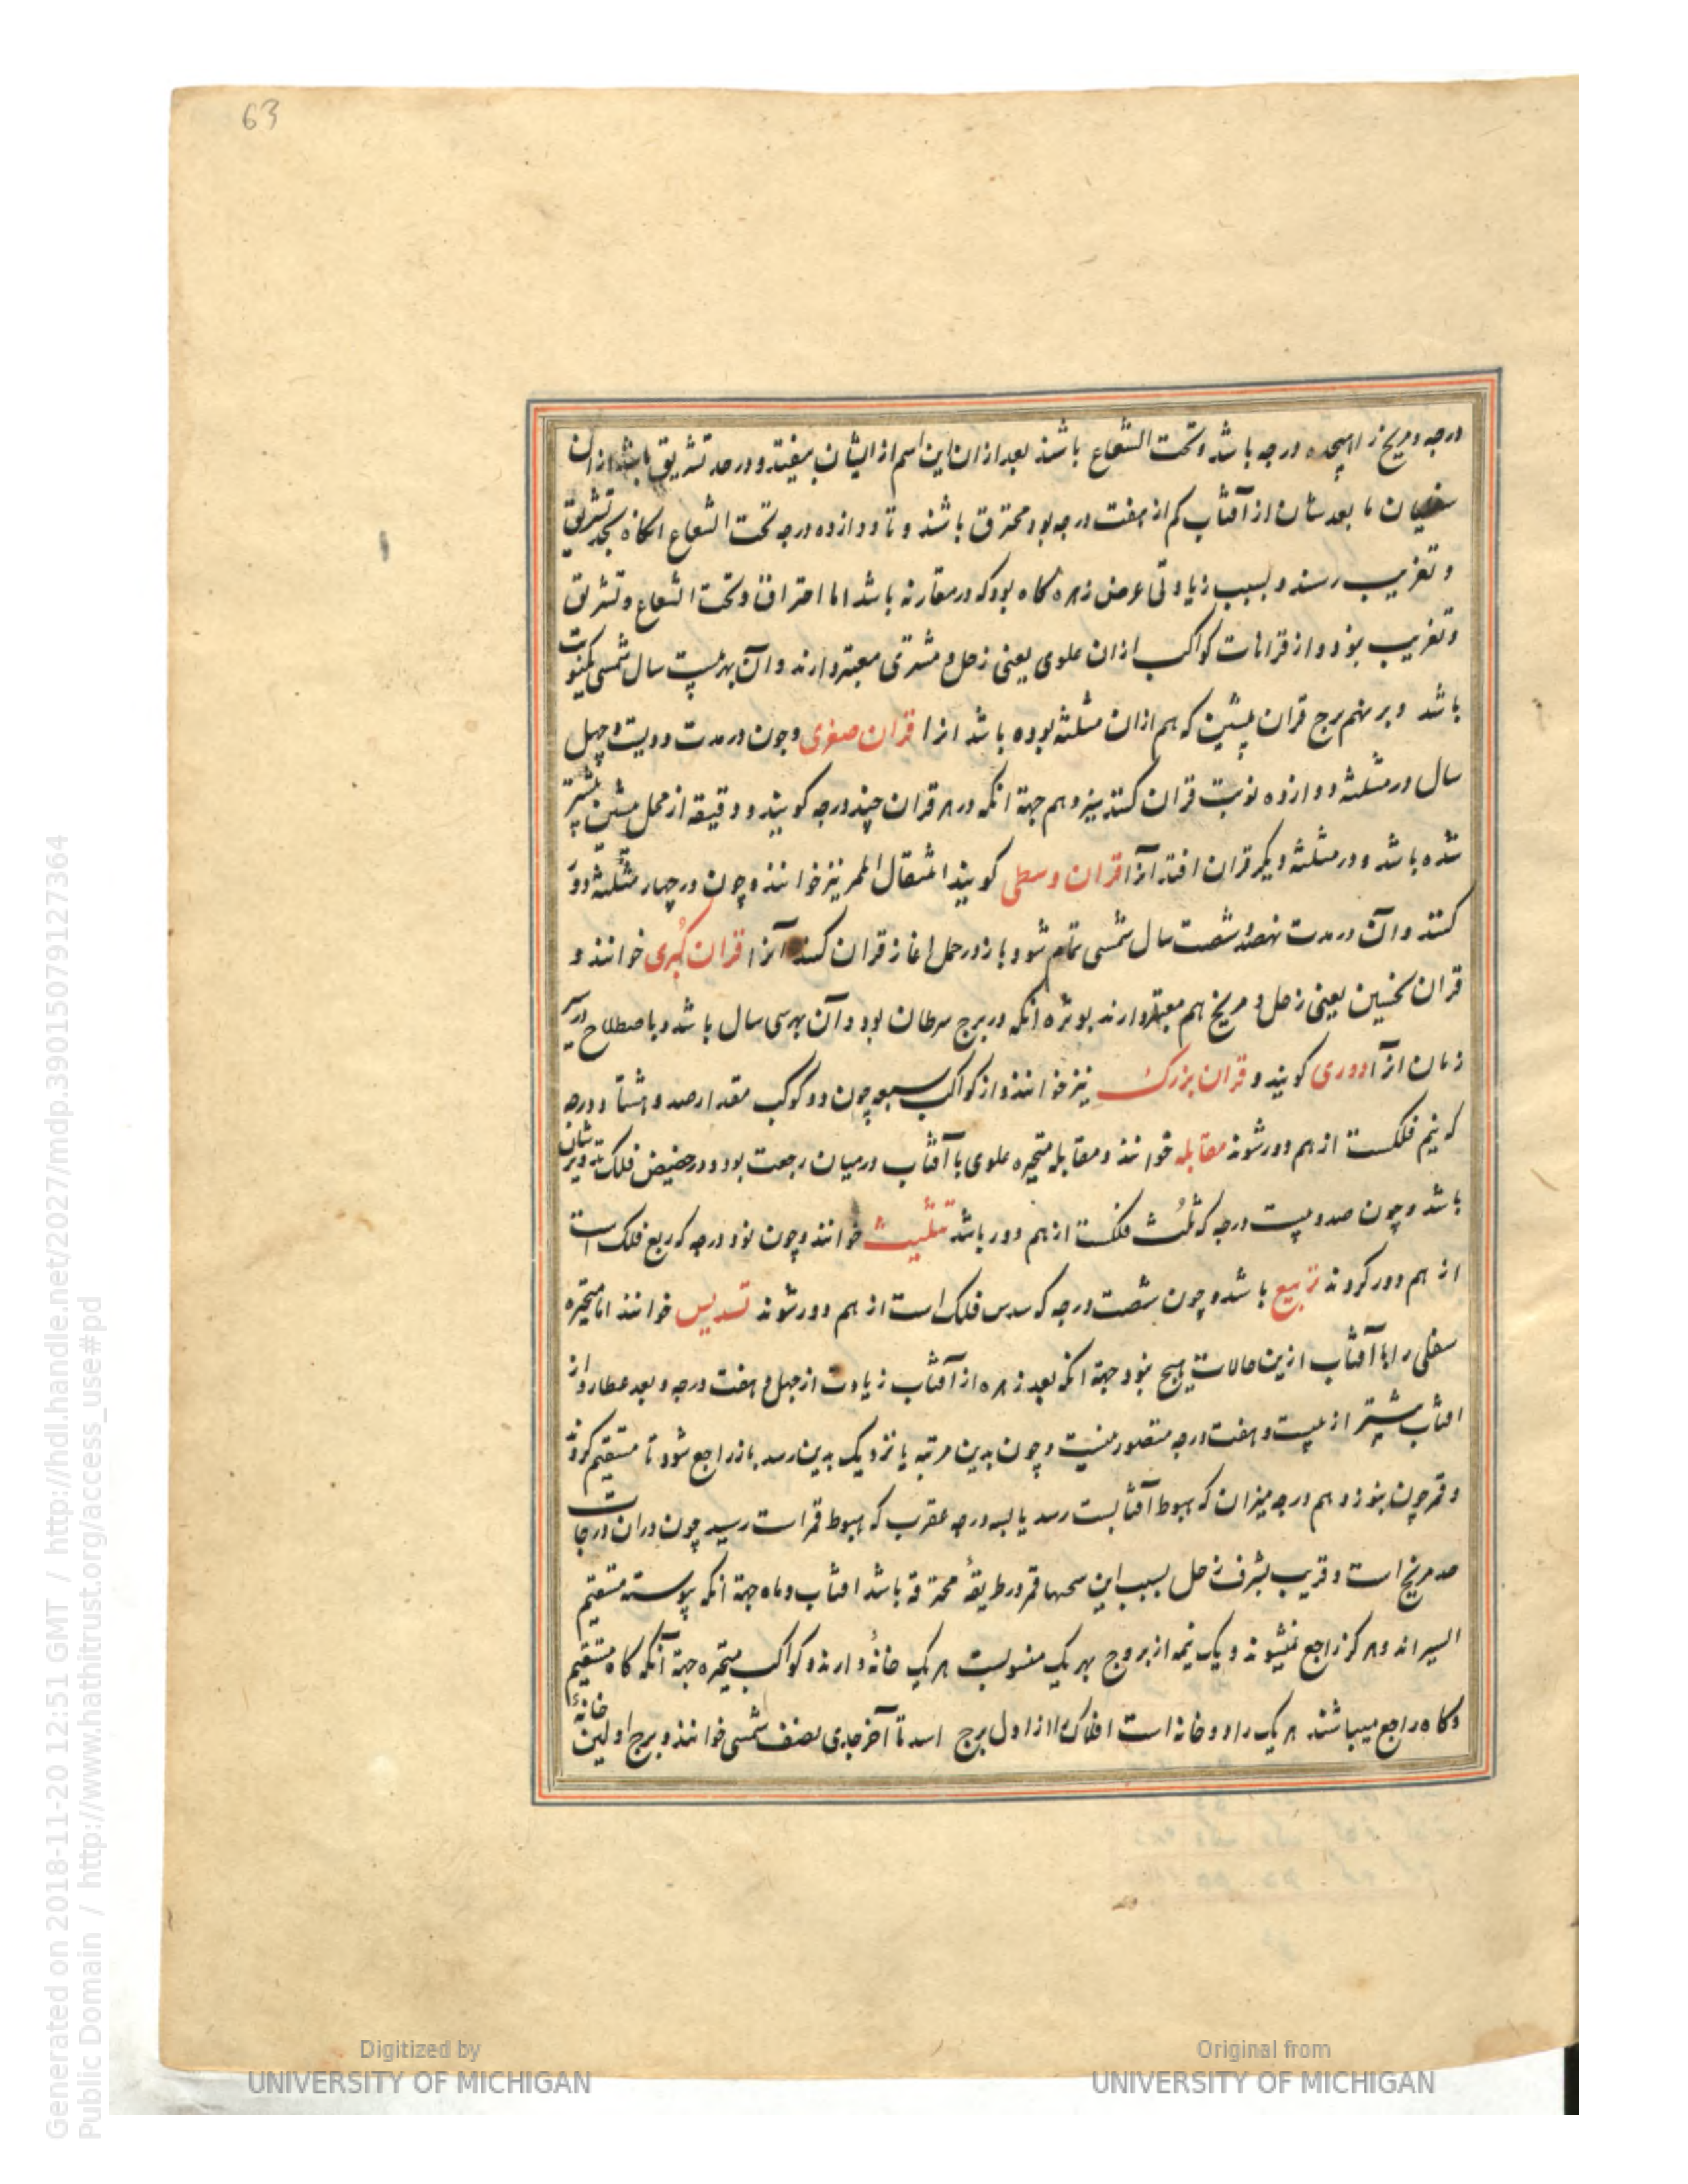 63
درجه و مریخ را هیجده درجه باشد و تحت الشعاع باشند بعد ازان این اسم از ایشان بیفتد و در حد تشریق باشد ازان
سفلیان تا بعدشان از آفتاب کم از هفت درجه بود محترق باشند و تا دوازده درجه تحت الشعاع انکاه بحد تشریق
و تغریب رسند و بسبب زیادتی عرض زهره کاه بود که در مقارنه باشد اما احتراق و تحت الشعاع و تشریق
و تغریب نبود و از قرانات کواکب ازان علوی یعنی زحل و مشتری معتبر دارند و آن بهر بیست سال شمسی یکنوبت
باشد و بر نهم برج قران پیشین که هم ازان مثلثه بوده باشد انرا قران صغری و چون در مدت دویست و چهل
سال در مثلثه دوازده نوبت قران کنند سیزدهم جهة انکه در هر قران چند درجه کویند و دقیقه از محل پیشین پیشتر
شده باشد و در مثلثه دیکر قران افتد آنرا قران وسطی کویند انتقال الممر نیز خوانند و چون در چهار مثلثه دور
کنند و آن در مدت نهصد و شصت سال شمسی تمام شود باز در حمل اغاز قران کنند آنرا قران کبری خوانند و
قران نحسین یعنی زحل و مریخ هم معتبر دارند بویژه انکه در برج سرطان بود و آن بهر سی سال باشد و باصطلاح درین
زمان انرا دوری کویند و قران بزرک نیز خوانند و از کواکب سبعه چون دو کوکب مقدار صد و هشتاد درجه
که نیم فلکست از هم دور شوند مقابله خوانند و مقابله متحیره علوی با آفتاب در میان رجعت بود و در حضیض فلک تدویرشان
باشد و چون صد و بیست درجه که ثلث فلکست از هم دور باشد تثلیث خوانند و چون نود درجه که ربع فلک است
از هم دور کردند تربیع باشد و چون شصت درجه که سدس فلک است از هم دور شوند تسدیس خوانند اما متحیره
سفلی را با آفتاب ازین حالات هیچ نبود جهة انکه بعد زهره از آفتاب زیادت از چهل و هفت درجه و بعد عطارد از
افتاب بیشتر از بیست و هفت درجه متصور نیست و چون بدین مرتبه یا نزدیک بدین رسد باز راجع شود تا مستقیم کردد
و قمر چون بنوزدهم درجه میزان که هبوط آفتابست رسد یا بسه درجه عقرب که هبوط قمر است رسید چون دران درجات
حد مریخ است و قریب بشرف زحل بسبب این قمر در طریقهٔ محترقه باشد افتاب و ماه جهة انکه پیوسته مستقیم
السیر اند و هرکز راجع نمیشوند و یک نیمه از بروج بهر یک منسوبست هر یک خانهٔ دارند و کواکب متحیره جهة آنکه کاه مستقیم
و کاه راجع میباشند هر یک را دو خانه است افلاک را از اول برج اسد تا آخر جدی نصف شمسی خوانند و برج اولین خانهٔ
Generated on 2018-11-20 12:51 GMT / http://hdl.handle.net/2027/mdp.39015079127364
Public Domain / http://www.hathitrust.org/access_use#pd
Digitized by
UNIVERSITY OF MICHIGAN
Original from
UNIVERSITY OF MICHIGAN